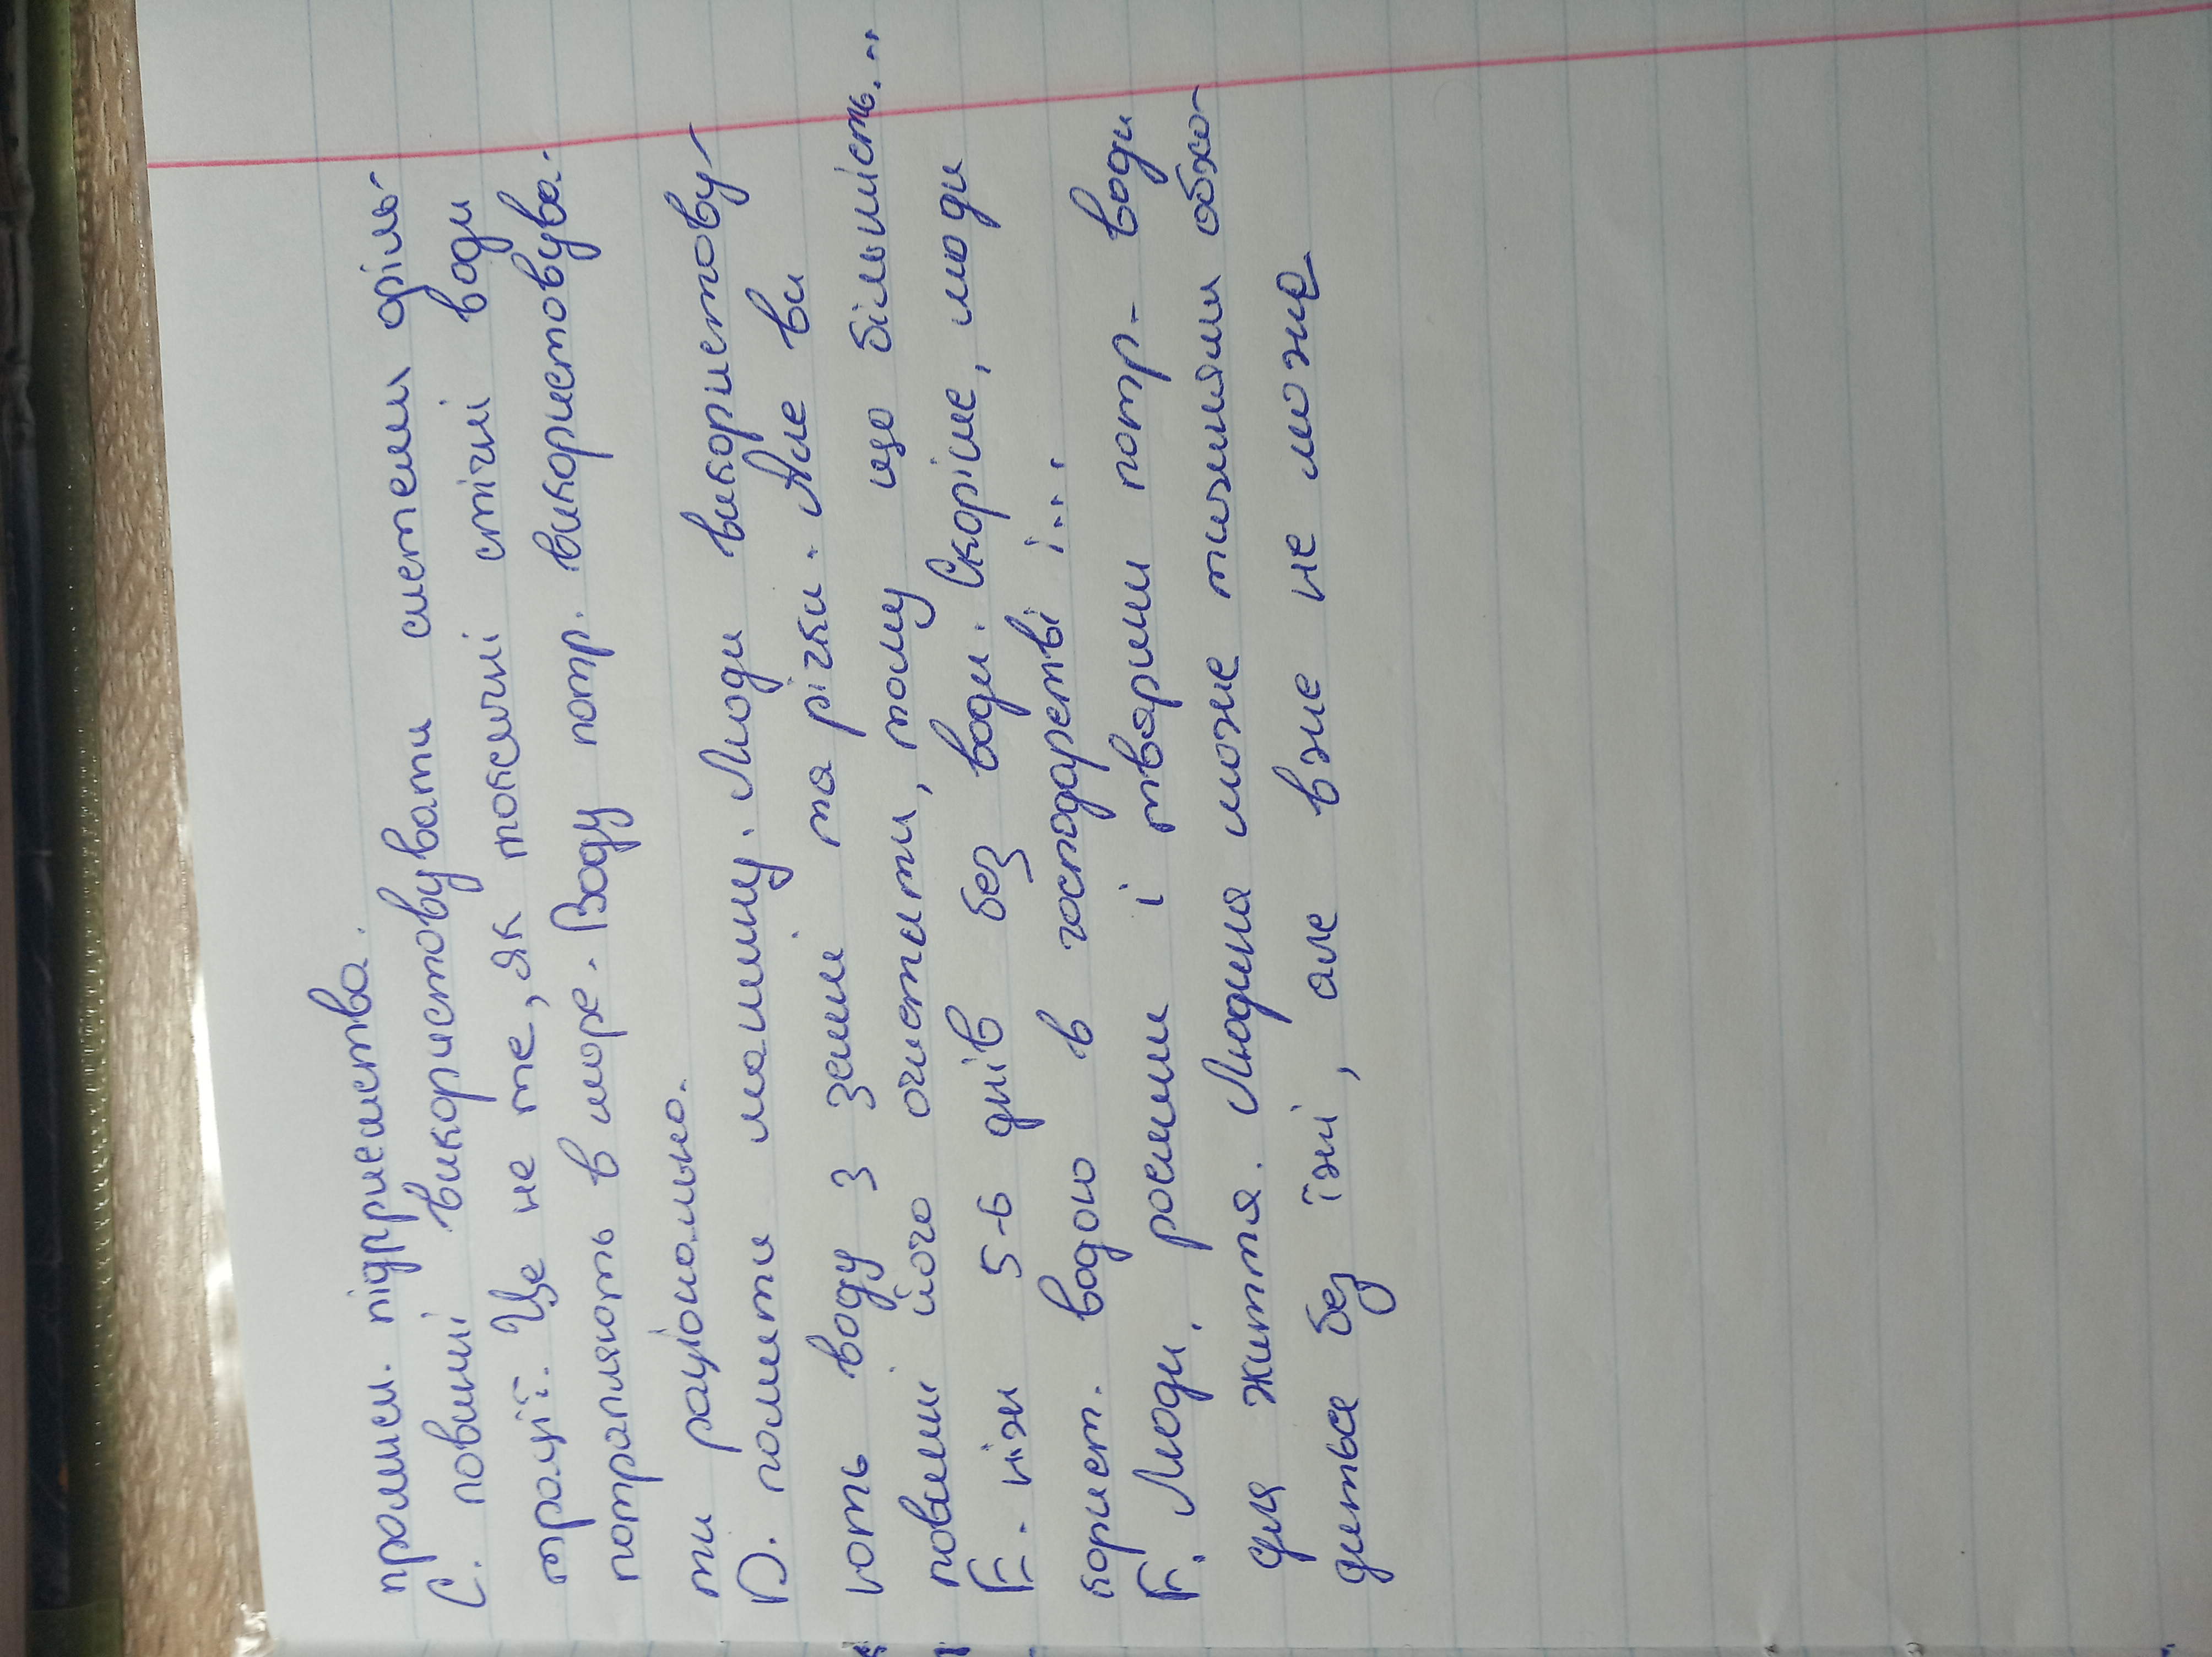 промисл. підприємства.
С. повинні використовувати системи фріль-
трації. Це не те, як токсичні стічні води
потрапляють в море. Воду потр. використовува-
ти раціонально.
D. помити машину. Люди використову-
ють воду з землі та річки. Але ви
повинні його очистити, тому що більшість...
E. ніж 5-6 днів без води. Скоріше, люди
корист. водою в господарстві і...
F. Люди, рослини і тварини потр- води
для життя. Людина може тижнями обхо-
диться без їжі, але вже не може